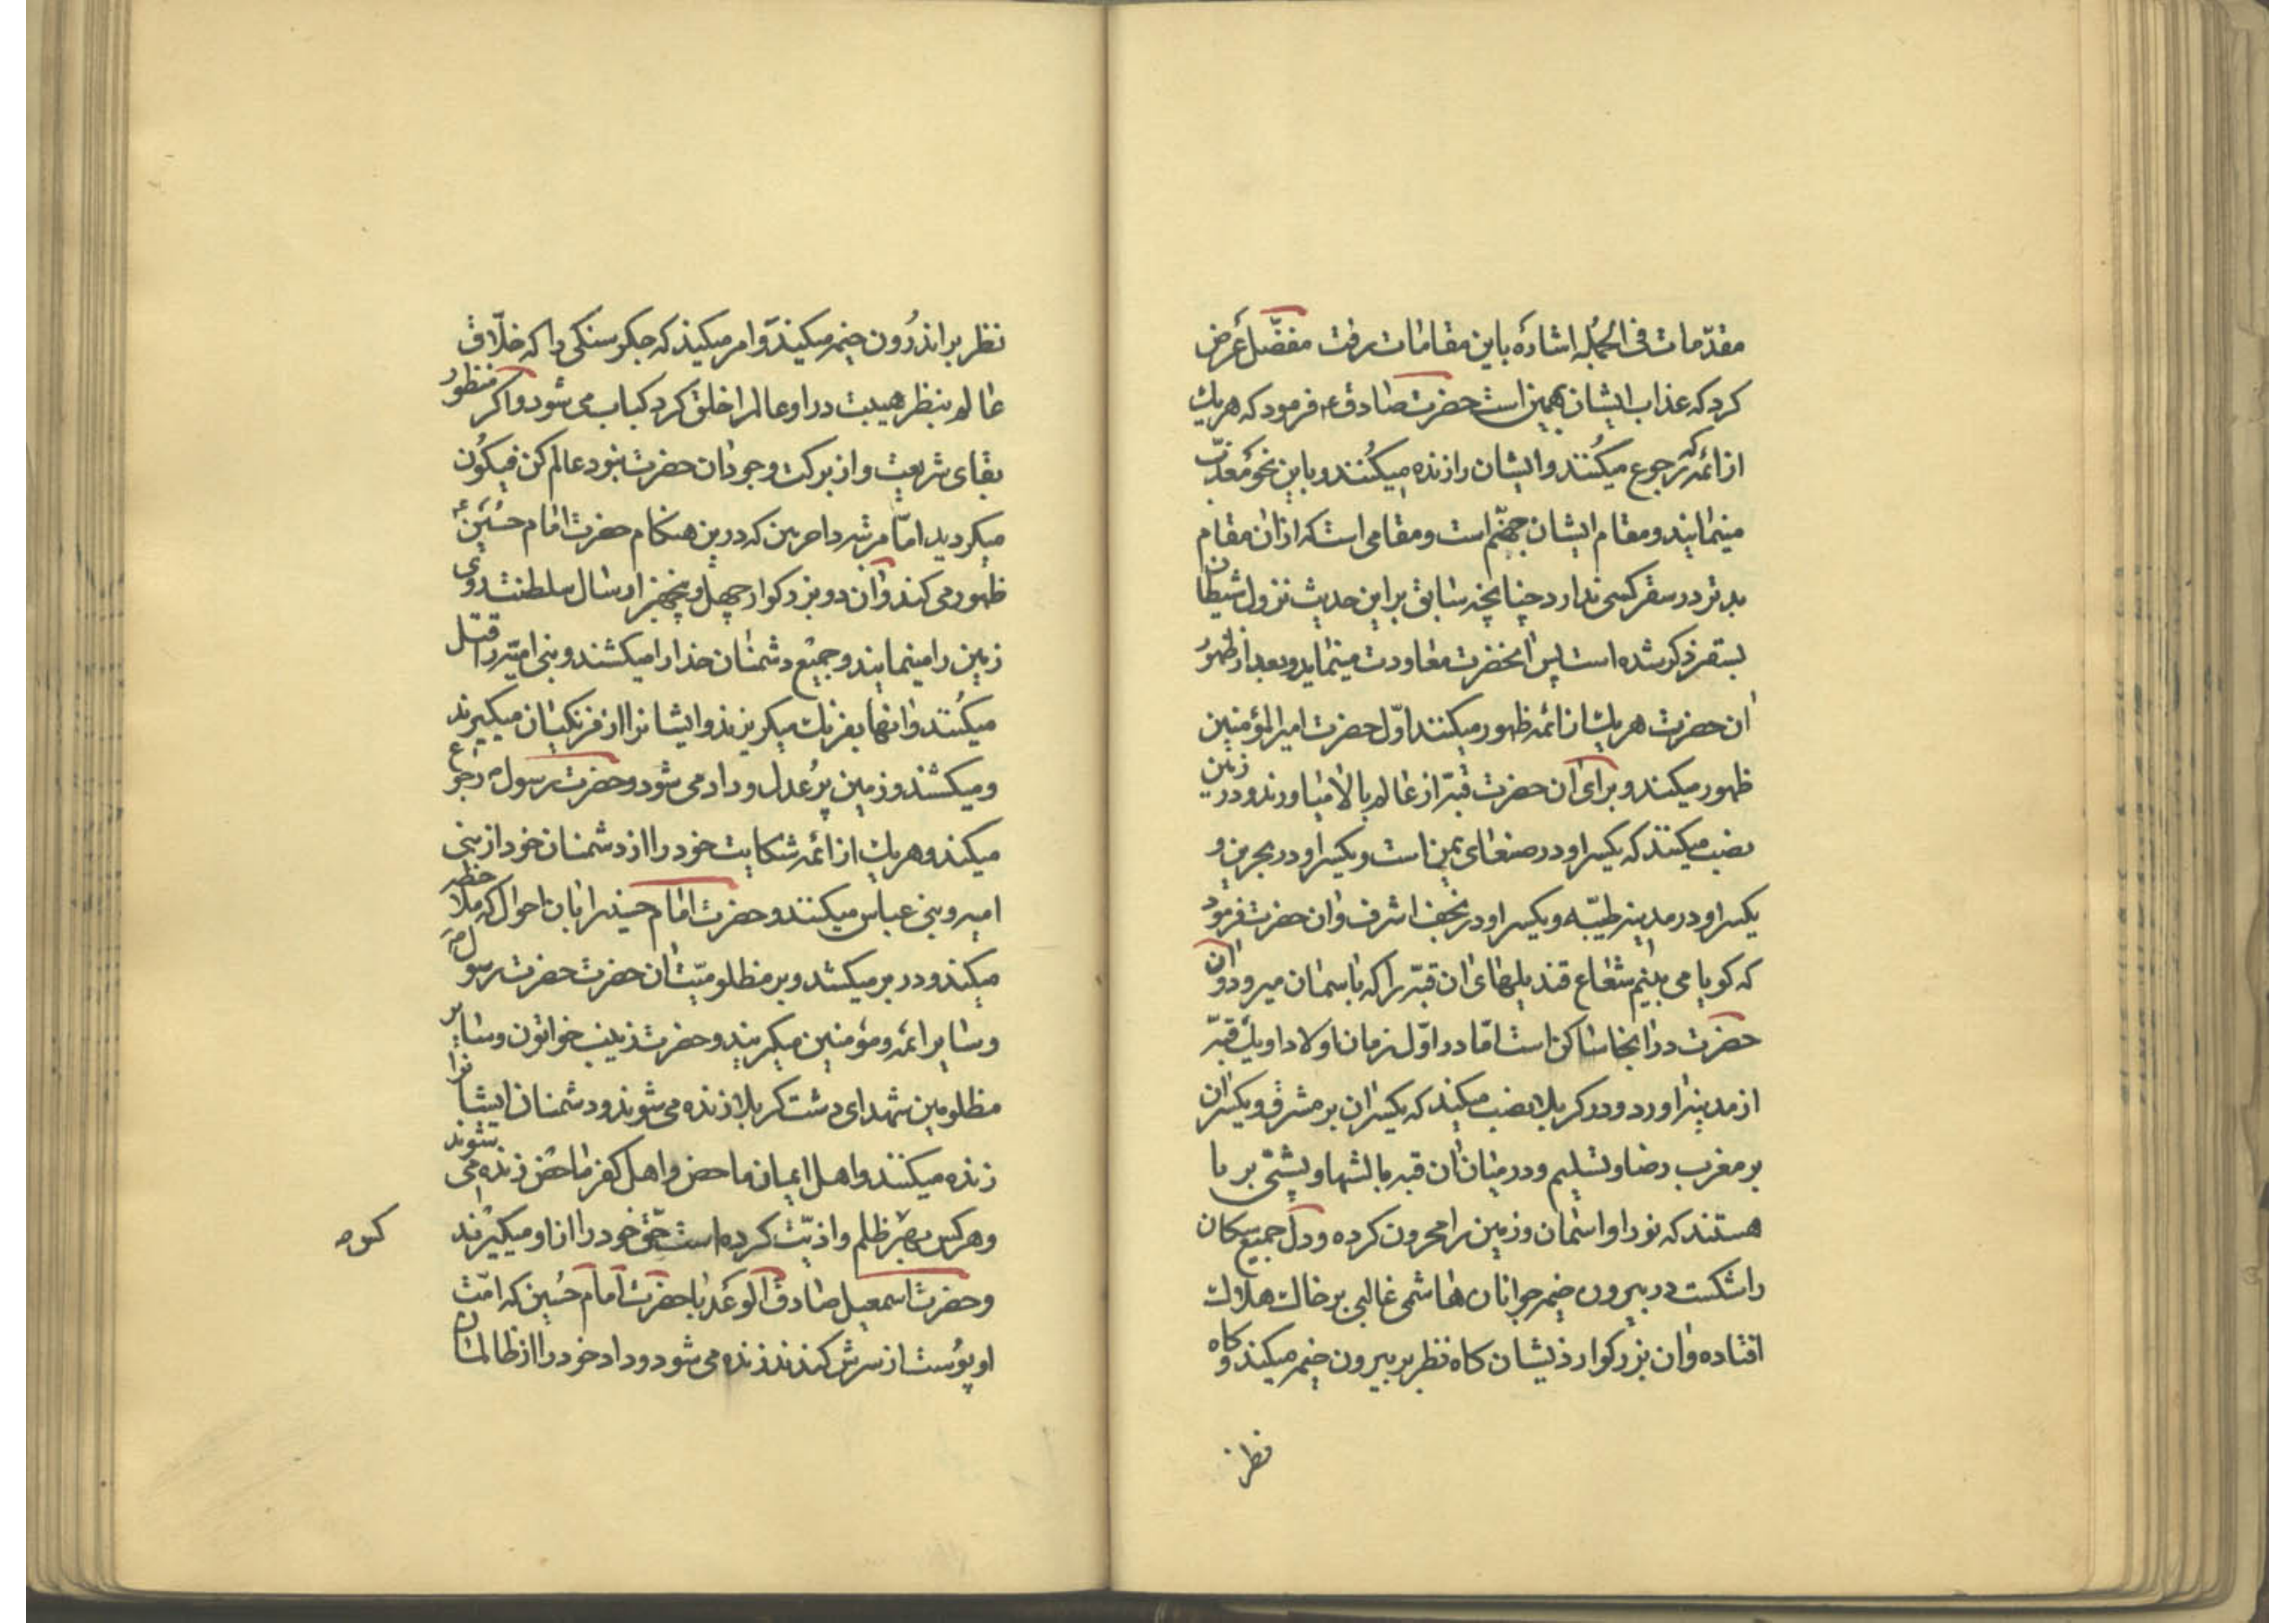 مقدّمات فی الجمله اشارهٔ باین مقامات رفت مفصّل عرض
کرد که عذاب ایشان همین است حضرت صادق ع فرمود که هریك
از ائمه که رجوع میکُنند و ایشان را زنده میکُنند و باین نحو معذّب
مینمایند و مقام ایشان جهنّم است و مقامی است که از ان مقام
بدتر در سقر کسی ندارد چنانچه سابق بر این حدیث نزول شیطان
بسقر ذکر شده است پس انحضرت معاودت مینماید و بعد از ظهور
ان حضرت هریك از ائمه ظهور میکنند اوّل حضرت امیرالمؤمنین
ظهور میکند و برای ان حضرت قبّه از عالم بالا میاورند و در زمین
نصب میکنند که یکسر او در صنعای یمن است و یکسر او در بحرین و
یکسر او در مدینه طیّبه و یکسر او در نجف اشرف و ان حضرت فرمود
که کویا می بینم شعاع قندیلهای ان قبّه را که باسمان میرود و ان
حضرت در انجا ساکن است امّا در اوّل زمان اولاد او یك قبّه
از مدینه اورد و در کربلا نصب میکند که یکسر ان بر مشرق و یکسر ان
بر مغرب رضا و تسلیم و در میان ان قبه بالشها و پشتی بر پا
هستند که نور او اسمان و زمین را محزون کرده و دل جمیع سکان
را شکست در بیرون خیمه جوانان هاشمی غالبی بر خاك هلاك
افتاده و ان بزرکوار ذیشان کاه نظر بر بیرون خیمه میکند و کاه
نظر
نظر بر اندرُون خیمه میکند و امر میکند که جکر سنکی را که خلّاق
عالم بنظر هیبت در او عالم را خلق کرد کباب می شود و اکر منظور
بقای شریعت و از برکت وجود ان حضرت نبود عالم کن فیکُون
میکردید امّا مرتبه دا حربین که درین هنکام حضرت امام حسُین ع
ظهور می کند و ان دو بزرکوار چهل و پنجهزار سال سلطنت روی
زمین را مینمایند و جمیع دشمنان خدا را میکشند و بنی امیّه را قتل
میکُنند و انها بفرنك میکریزند و ایشانرا از فرنکیان میکیرند
و میکشند و زمین پُر عدل و داد می شود و حضرت رسول ص رجوع
میکند و هریك از ائمه شکایت خود را از دشمنان خود از بنی
امیه و بنی عباس میکنند و حضرت امام حسین را بان احوال که ملاحظه
میکند و در بر میکشد و بر مظلومیّت ان حضرت حضرت رسول ص
و سایر ائمه و مؤمنین میکریند و حضرت زینب خواتون و سایر
مظلومین شهدای دشت کربلا زنده می شوند و دشمنان ایشانرا
زنده میکنند و اهل ایمان ماحض و اهل کفر ماحض زنده می شوند
و هر کس بهر ظلم و اذیّت کرده است حقّ خود را از او میکیرند
و حضرت اسمعیل صادق الوعد با حضرت امام حُسین که امّت
او پوُست از سرش کندند زنده می شود و داد خود را از ظالمان